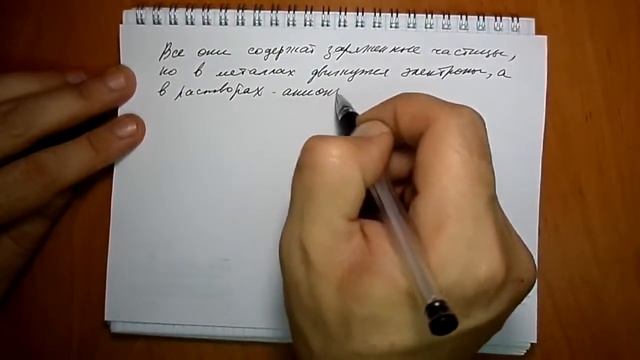 Все они содержат заряженные частицы,
но в металлах движутся электроны, а
в растворах - анион